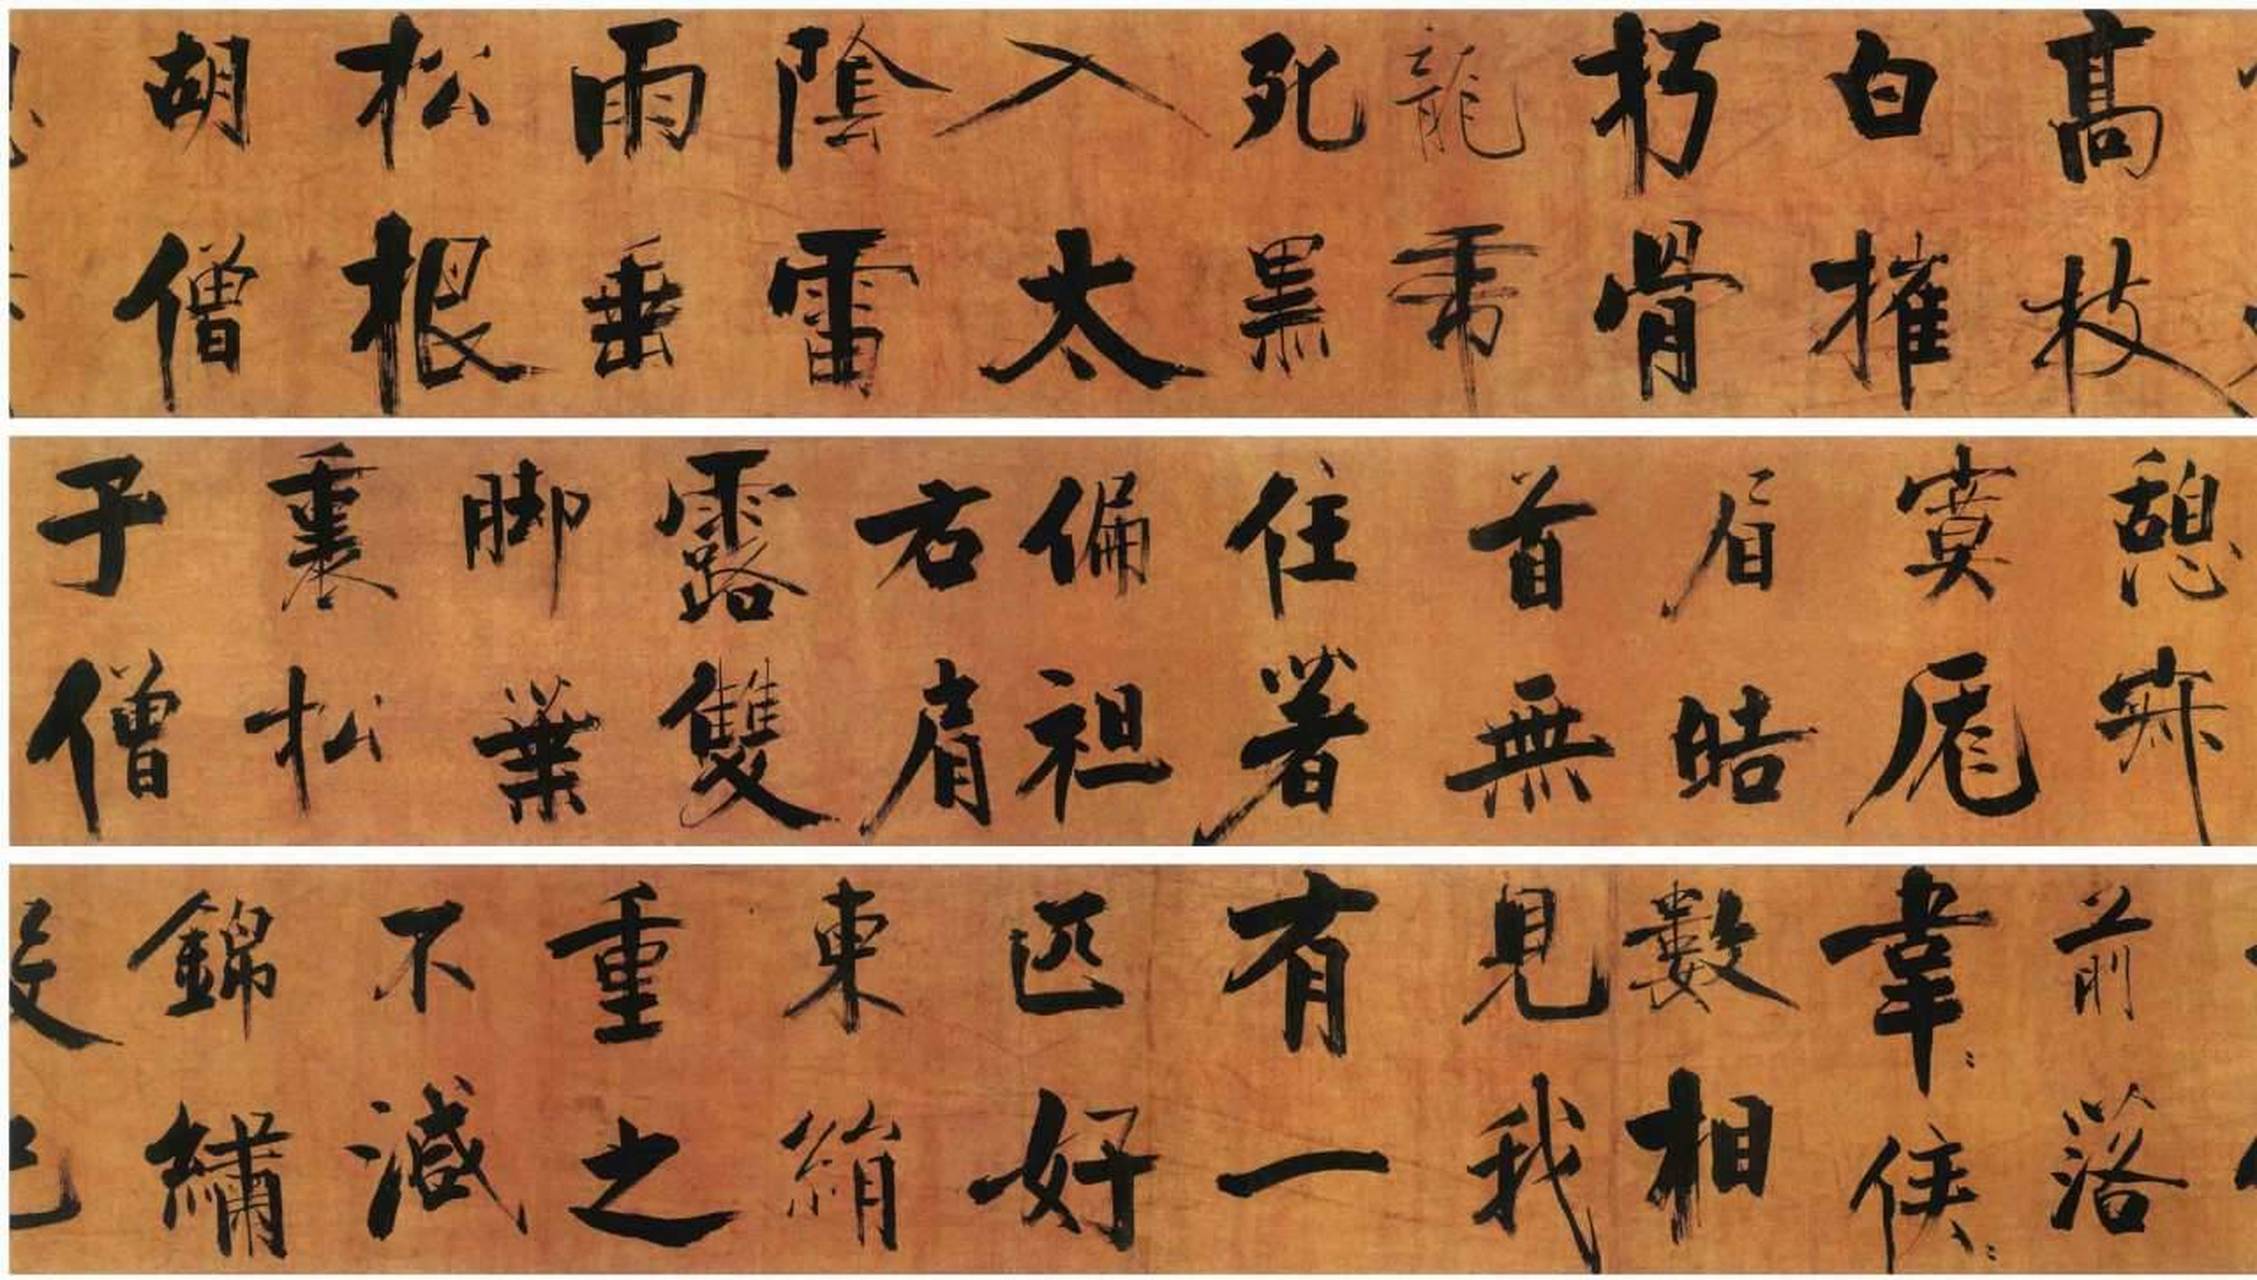 高枝
白摧
朽骨
龍虎
死黑
入太
陰雷
雨垂
松根
胡僧
憩寂
寞厖
眉皓
首無
住著
偏袒
右肩
露雙
脚葉
裏松
子僧
前落
韋〻侯〻
數相
見我
有一
匹好
東絹
重之
不減
錦繡